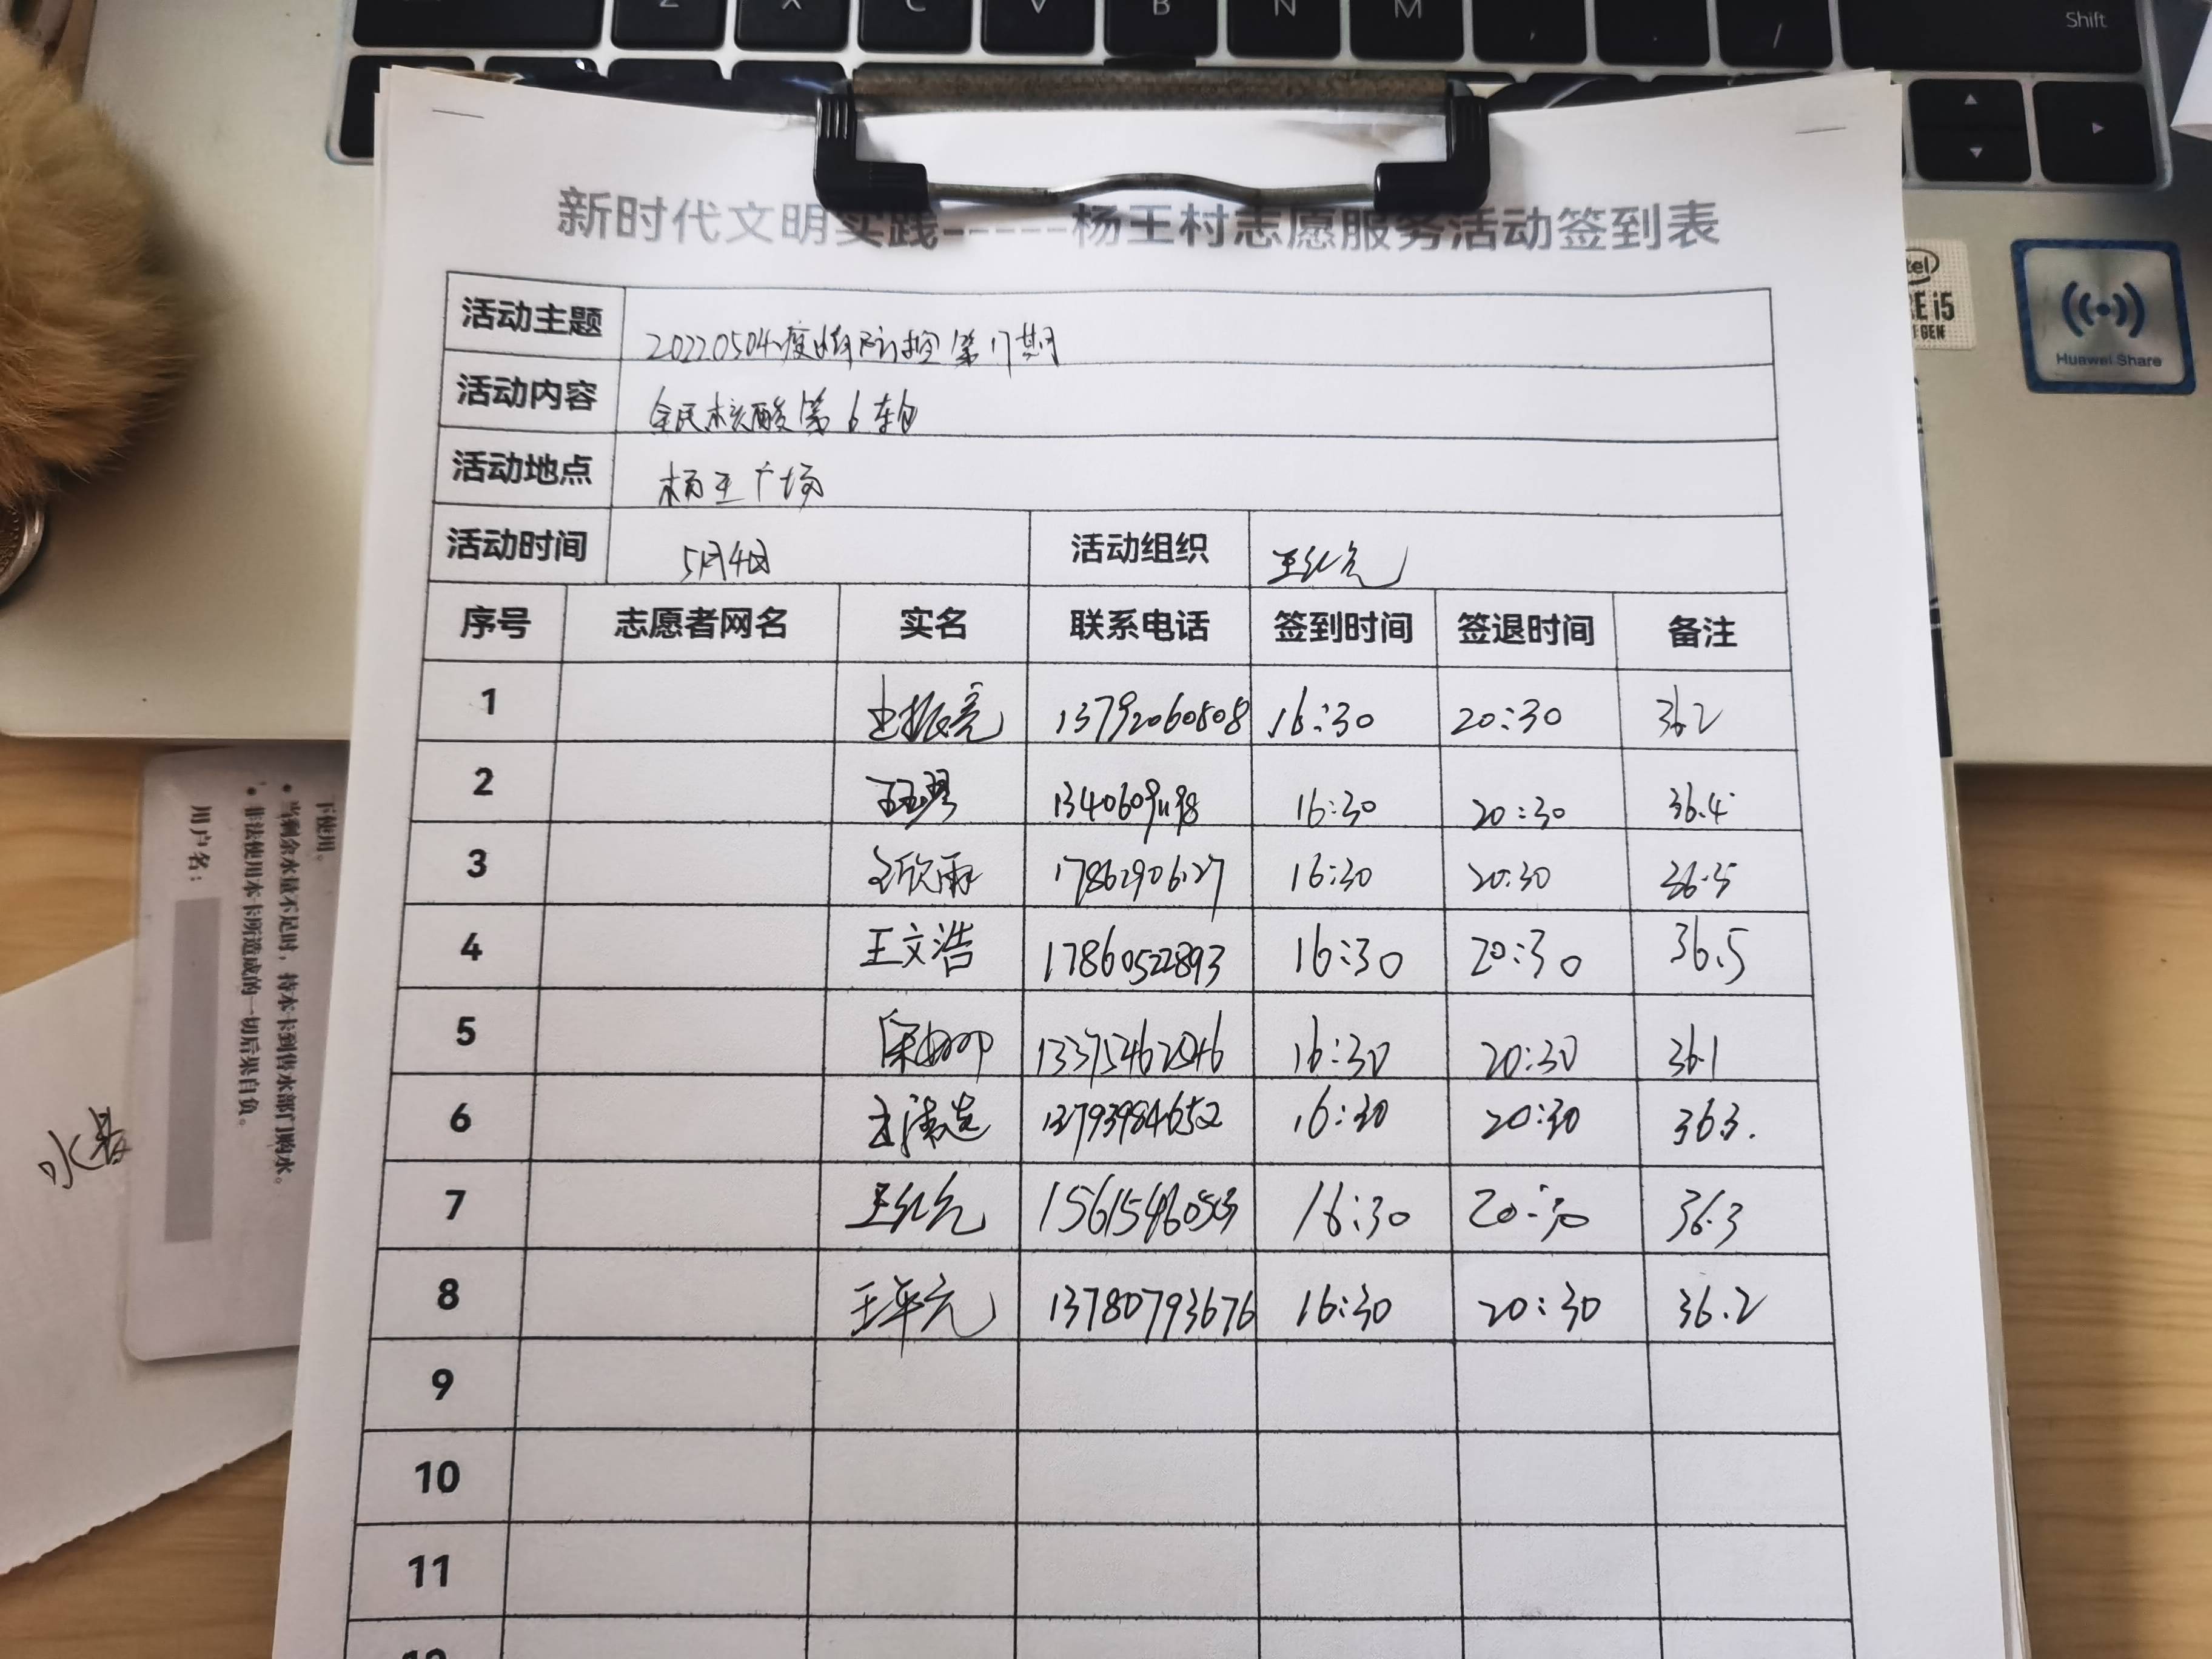 Z X C V B N M , . / Shift
新时代文明实践-----杨王村志愿服务活动签到表
intel
CORE i5
Huawei Share
活动主题 20220504疫情防控第17期
活动内容 全民核酸第6轮
活动地点 杨王广场
活动时间 5月4日 活动组织
序号 志愿者网名 实名 联系电话 签到时间 签退时间 备注
1 王振亮 13792060808 16:30 20:30 36.2
2 16:30 20:30 36.4
3 王欣雨 16:30 20:30 36.5
4 王文浩 17860522893 16:30 20:30 36.5
5 16:30 20:30 36.1
6 13793984652 16:30 20:30 363.
7 16:30 20:30 36.3
8 13780793676 16:30 20:30 36.2
9
10
11
下使用。
• 当剩余水量不足时，持本卡到售水部门购水。
• 非法使用本卡所造成的一切后果自负。
用户名：